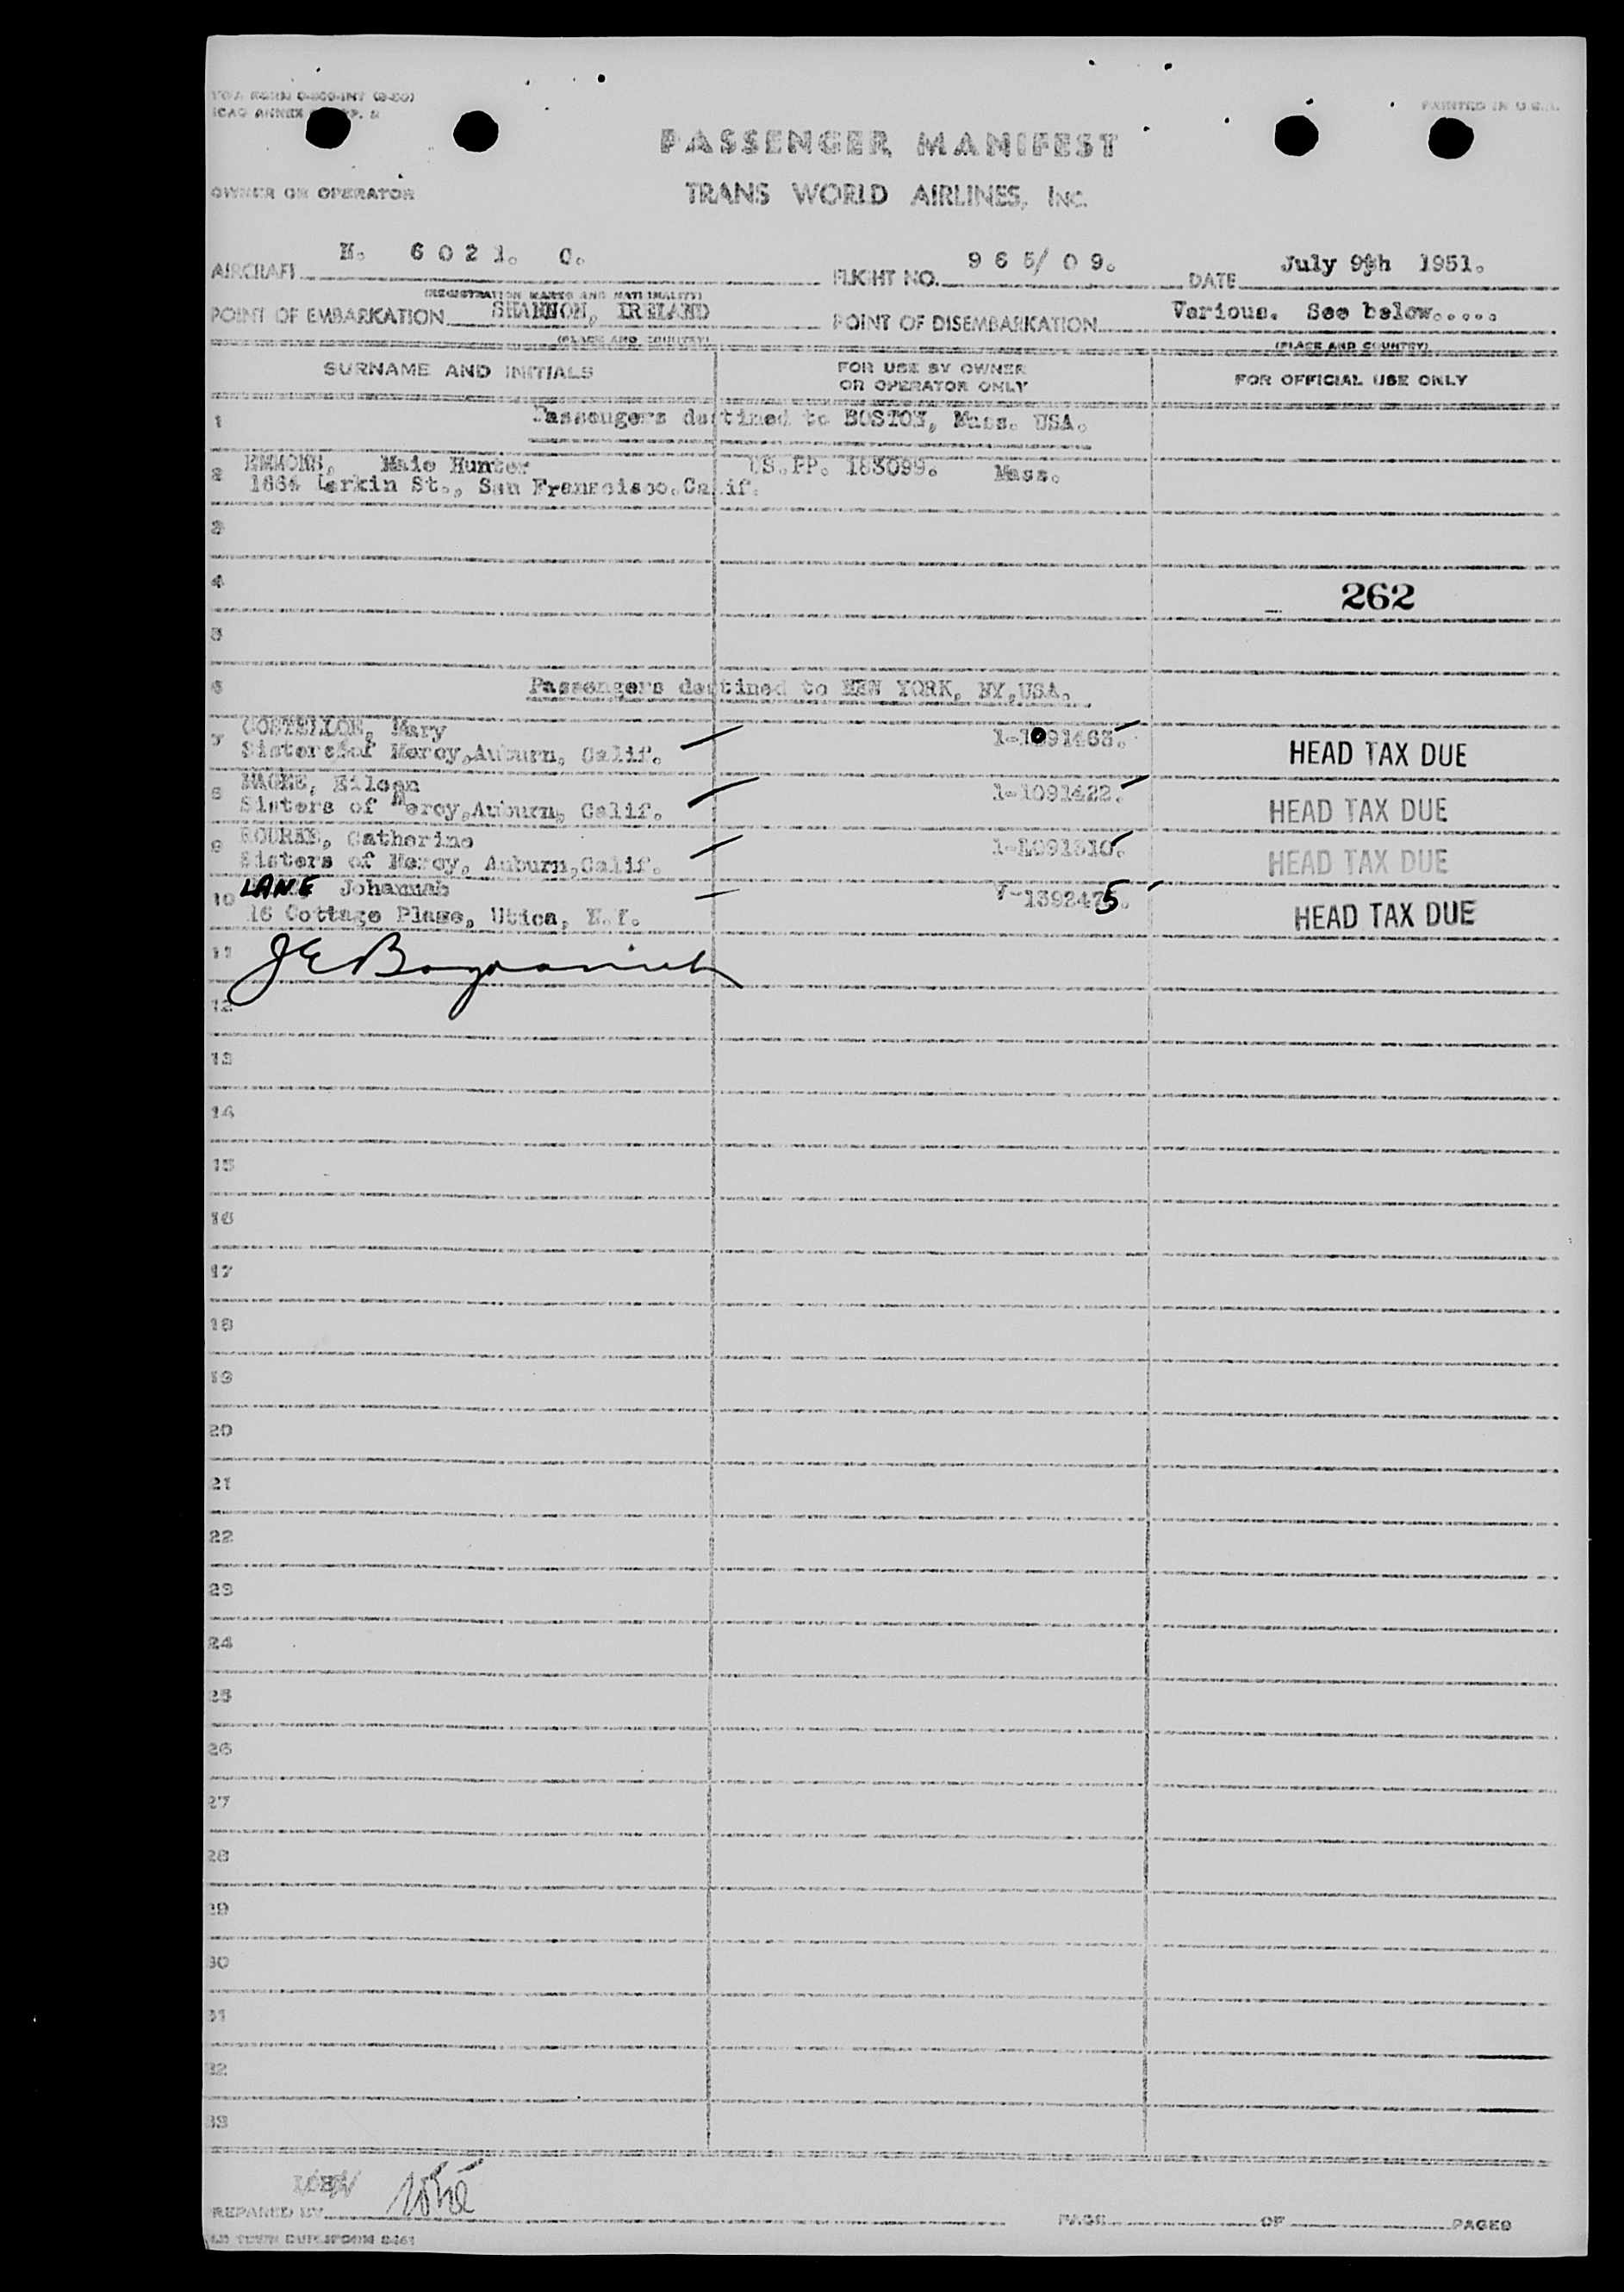 PRINTED IN U.S.A.
PASSENGER MANIFEST
OWNER OR OPERATOR
TRANS WORLD AIRLINES, INC.
AIRCRAFT N. 6 0 2 1. C. FLIGHT NO. 9 6 5/ 0 9. DATE July 9th 1951.
(REGISTRATION MARKS AND NATIONALITY)
POINT OF EMBARKATION SHANNON, IRELAND POINT OF DISEMBARKATION Various. See below.....
(PLACE AND COUNTRY) (PLACE AND COUNTRY)
SURNAME AND INITIALS FOR USE BY OWNER OR OPERATOR ONLY FOR OFFICIAL USE ONLY
1 Passengers destined to BOSTON, Mass. USA.
2 EMMONS, Maie Hunter US.PP. 183099. Mass.
1864 Larkin St., San Franscisco.Calif.
3
4 262
5
6 Passengers destined to NEW YORK, NY,USA.
7 COSTELLOE, Mary 1-1091463.
Sisters of Mercy,Auburn, Calif. HEAD TAX DUE
8 NAGLE, Eileen 1-1091422.
Sisters of Mercy,Auburn, Calif. HEAD TAX DUE
9 ROURKE, Catherine 1-1091310.
Sisters of Mercy, Auburn,Calif. HEAD TAX DUE
10 LANE Johannah V-1392475.
16 Cottage Plase, Utica, N.Y. HEAD TAX DUE
11
12
13
14
15
16
17
18
19
20
21
22
23
24
25
26
27
28
29
30
31
32
33
PREPARED BY PAGE OF PAGES